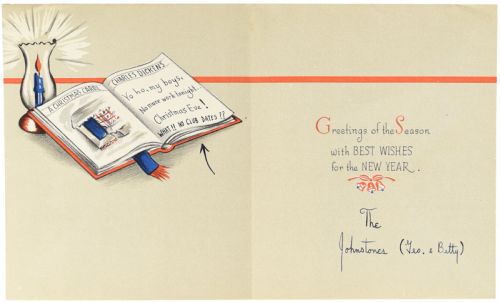 A CHRISTMAS CAROL
CHARLES DICKENS
Yo ho, my boys,
No more work tonight...
Christmas Eve!
WHAT!! NO CLUB DATES!?
Greetings of the Season
with BEST WISHES
for the NEW YEAR.
The
Johnstones (Geo. & Betty)